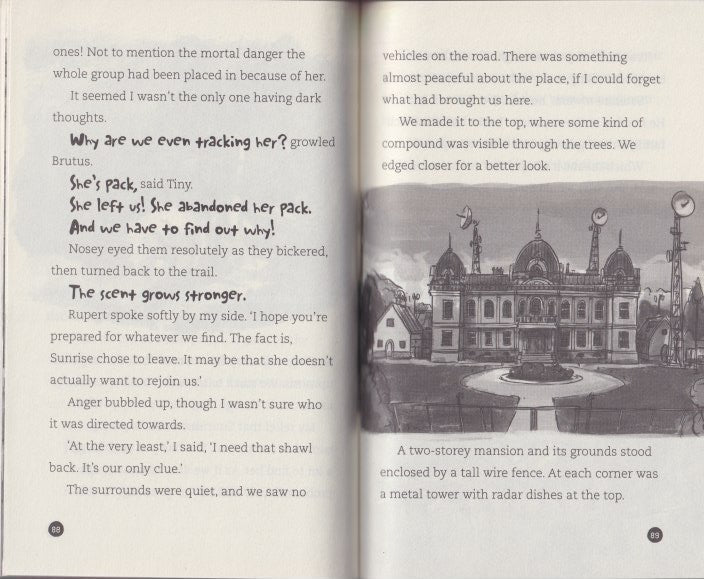 ones! Not to mention the mortal danger the
whole group had been placed in because of her.
It seemed I wasn't the only one having dark
thoughts.
Why are we even tracking her? growled
Brutus.
She's pack, said Tiny.
She left us! She abandoned her pack.
And we have to find out why!
Nosey eyed them resolutely as they bickered,
then turned back to the trail.
The scent grows stronger.
Rupert spoke softly by my side. 'I hope you're
prepared for whatever we find. The fact is,
Sunrise chose to leave. It may be that she doesn't
actually want to rejoin us.'
Anger bubbled up, though I wasn't sure who
it was directed towards.
'At the very least,' I said, 'I need that shawl
back. It's our only clue.'
The surrounds were quiet, and we saw no
88
vehicles on the road. There was something
almost peaceful about the place, if I could forget
what had brought us here.
We made it to the top, where some kind of
compound was visible through the trees. We
edged closer for a better look.
A two-storey mansion and its grounds stood
enclosed by a tall wire fence. At each corner was
a metal tower with radar dishes at the top.
89